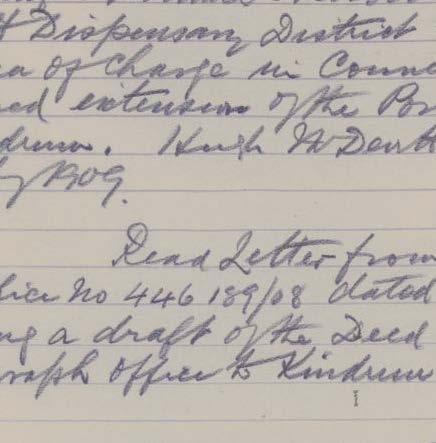 Dispensary District
of Charge in Conne
ed extension of the Po
drum. Hugh McDevitt
y 1909.
Read Letter from
fice No 446189/08 dated
ng a draft of the Deed
graph office to Kindrum